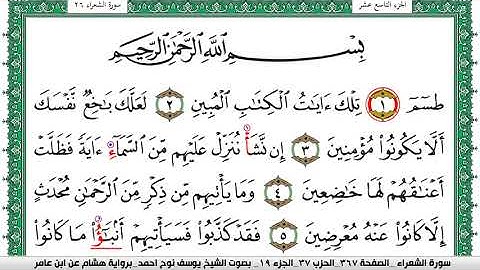 سورة الشعراء ٢٦
الجزء التاسع عشر
بِسْمِ اللَّهِ الرَّحْمَٰنِ الرَّحِيمِ
طسٓمٓ ١ تِلْكَ ءَايَاتُ الْكِتَابِ الْمُبِينِ ٢ لَعَلَّكَ بَاخِعٌ نَّفْسَكَ
أَلَّا يَكُونُوا۟ مُؤْمِنِينَ ٣ إِن نَّشَأْ نُنَزِّلْ عَلَيْهِم مِّنَ السَّمَآءِ ءَايَةً فَظَلَّتْ
أَعْنَاقُهُمْ لَهَا خَاضِعِينَ ٤ وَمَا يَأْتِيهِم مِّن ذِكْرٍ مِّنَ الرَّحْمَٰنِ مُحْدَثٍ
إِلَّا كَانُوا۟ عَنْهُ مُعْرِضِينَ ٥ فَقَدْ كَذَّبُوا۟ فَسَيَأْتِيهِمْ أَنۢبَٰٓؤُا۟ مَا كَانُوا۟
سورة الشعراء _الصفحة ٣٦٧_ الحزب ٣٧_ الجزء ١٩ _ بصوت الشيخ يوسف نوح احمد_ برواية هشام عن ابن عامر